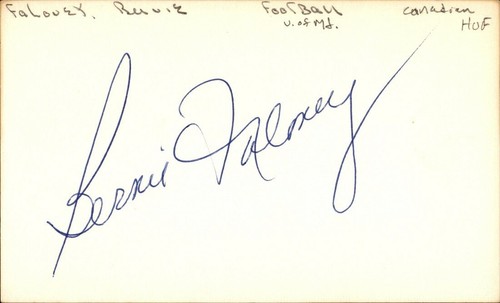 Faloney, Bernie Football Canadian
U. of Md. HOF
Bernie Faloney